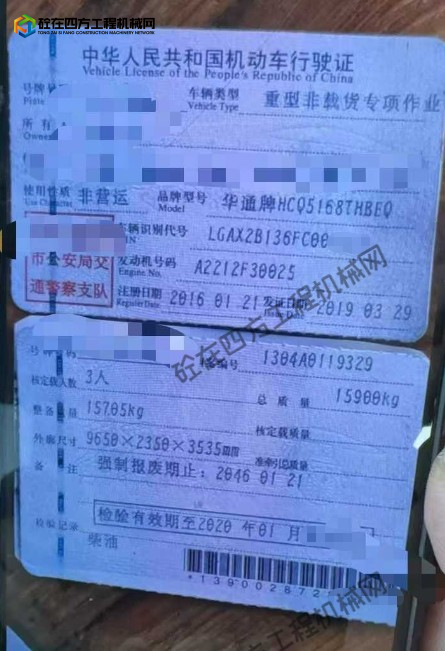 砼在四方工程机械网
TONG ZAI SI FANG CONSTRUCTION MACHINERY NETWORK
中华人民共和国机动车行驶证
Vehicle License of the People's Republic of China
号牌
Plate
车辆类型
Vehicle Type
重型非载货专项作业
所有
Owner
使用性质
Use Character
非营运
品牌型号
Model
华通牌HCQ5168THBEQ
车辆识别代号
VIN
LGAX2B136FC00
市公安局交
通警察支队
发动机号码
Engine No.
A2212F30025
注册日期
Register Date
2016 01 21
发证日期
Issue Date
2019 03 29
号牌号码
档案编号
1304A0119329
核定载人数
3人
总质量
15900kg
整备质量
15705kg
核定载质量
外廓尺寸
9650×2350×3535mm
准牵引总质量
备注
强制报废期止：2046 01 21
检验记录
检验有效期至2020 年01 月
柴油
砼在四方工程机械网
砼在四方工程机械网